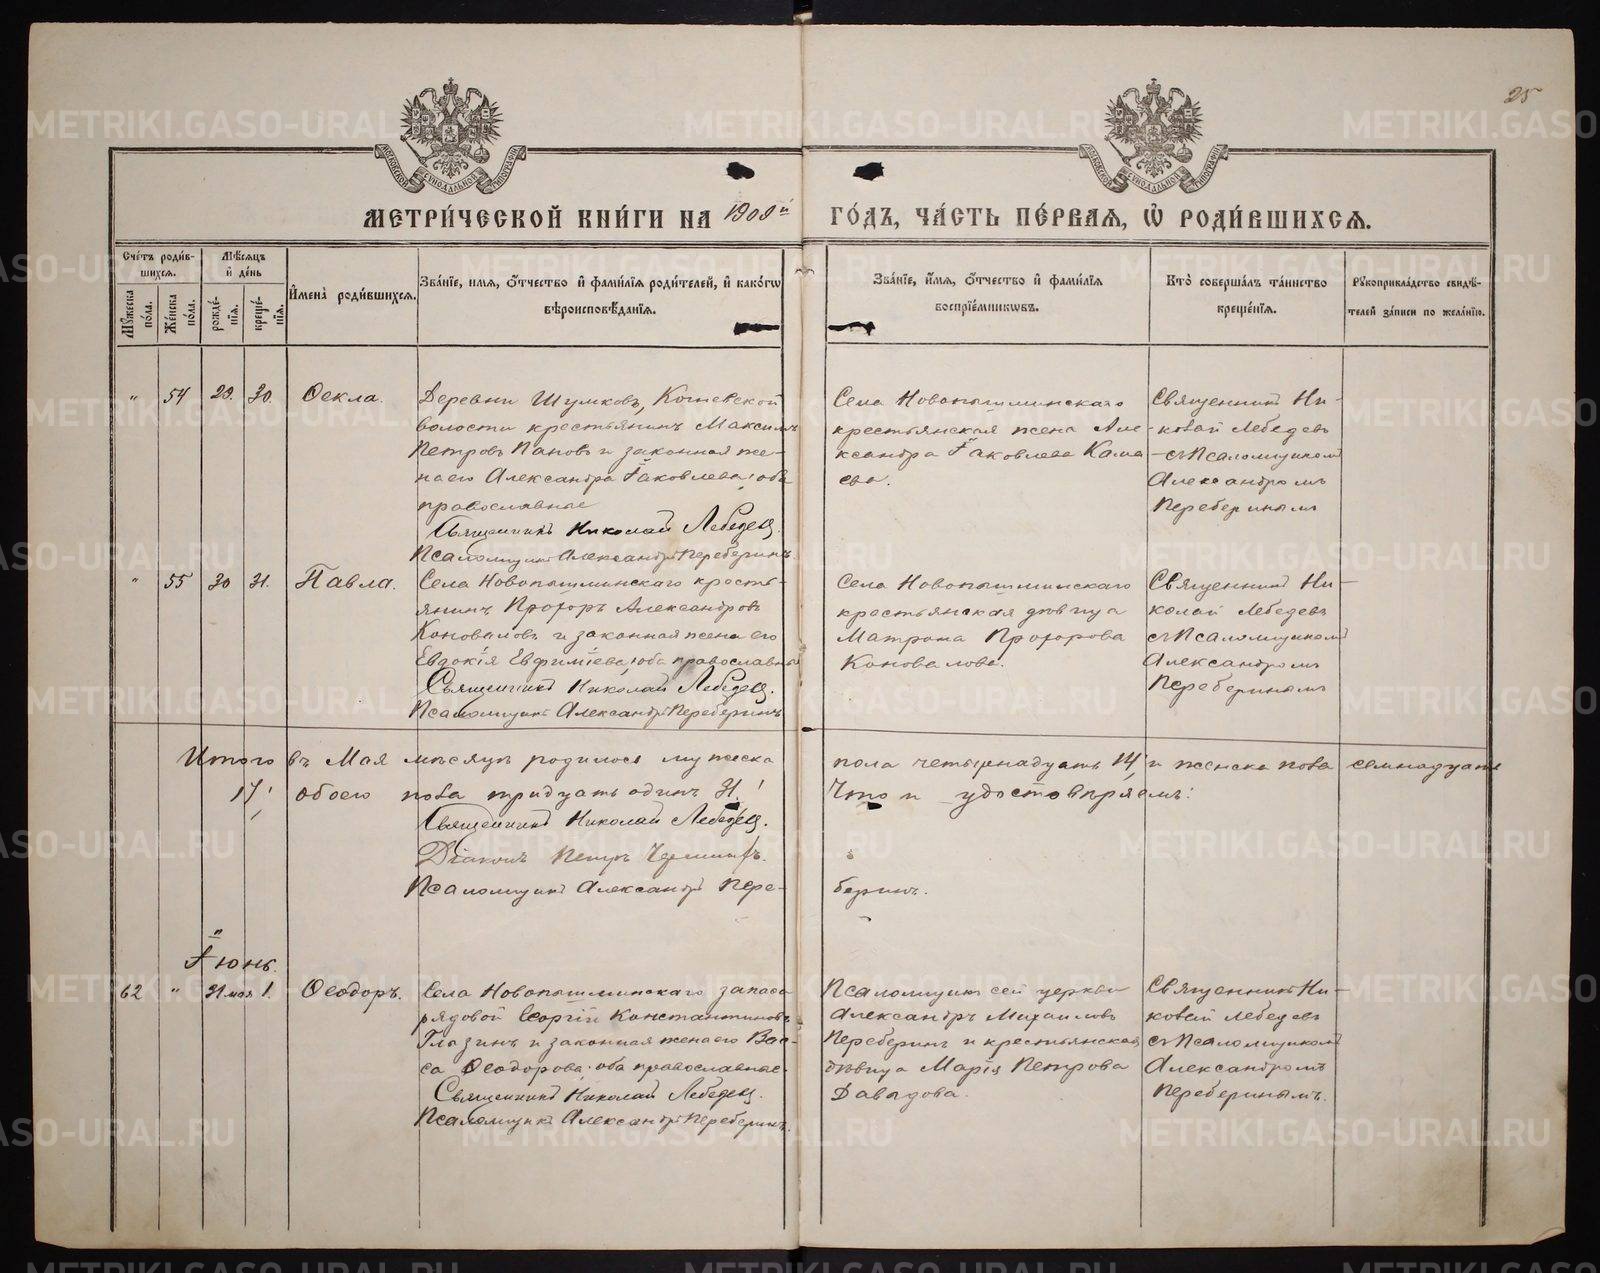 25
МЕТРИ́ЧЕСКОЙ КНИ́ГИ НА 1909й ГО́ДЪ, ЧА́СТЬ ПЕ́РВАЯ, Ѽ РОДИ́ВШИХСЯ.
Сче́тъ роди́в-
шихся.
Мѣ́сяцъ
и҆ де́нь
Мꙋ́жеска по́ла.
Же́нска по́ла.
рожде́-
нїя.
креще́-
нїя.
И҆мена̀ роди́вшихся.
Зва́нїе, и҆мя, ѻ҆́тчество и҆ фами́лїя роди́телей, и҆ како́гѡ
вѣроисповѣ́данїя.
Зва́нїе, и҆́мя, ѻ҆́тчество и҆ фами́лїя
воспрїе́мникѡвъ.
Кто̀ соверша́лъ та́инство
креще́нїя.
Рꙋкоприкла́дство свидѣ́-
телей за́писи по жела́нїю.
" 54 29. 30. Ѳекла.
Деревни Шумковъ, Когневской
волости крестьянинъ Максимъ
Петровъ Пановъ и законная же-
на его Александра Іаковлева; оба
православные
Священникъ Николай Лебедевъ.
Псаломщикъ Александръ Переберинъ.
Села Новопышминскаго
крестьянская жена Але-
ксандра Іаковлева Кома
ева.
Священникъ Ни-
колай Лебедевъ
съ Псаломщикомъ
Александромъ
Переберинымъ
" 55 30 31. Павла.
Села Новопышминскаго кресть-
янинъ Прохоръ Александровъ
Коноваловъ и законная жена его
Евдокія Евфиміева; оба православные
Священникъ Николай Лебедевъ.
Псаломщикъ Александръ Переберинъ
Села Новопышминскаго
крестьянская дѣвица
Матрона Прохорова
Коновалова.
Священникъ Ни-
колай Лебедевъ
съ Псаломщикомъ
Александромъ
Переберинымъ
Итого въ Маѣ мѣсяцѣ родилось мужеска пола четырнадцать 14, и женска пола семнадцать
17, обоего пола тридцать одинъ 31.! Что и удостовѣряемъ:
Священникъ Николай Лебедевъ.
Діаконъ Петръ
Псаломщикъ Александръ Пере-
беринъ.
Іюнь.
62 " 31 мая 1. Ѳеодоръ.
Села Новопышминскаго запаса
рядовой Георгій Константиновъ
Глазинъ и законная жена его Вас-
са Ѳеодорова; оба православные.
Священникъ Николай Лебедевъ.
Псаломщикъ Александръ Переберинъ.
Псаломщикъ сей церкви
Александръ Михаиловъ
Переберинъ и крестьянская
дѣвица Марія Петрова
Давыдова.
Священникъ Ни-
колай Лебедевъ
съ Псаломщикомъ
Александромъ
Переберинымъ.
METRIKI.GASO-URAL.RU